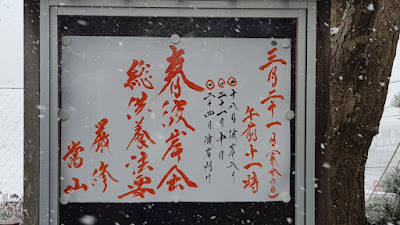 三月二十一日(春分の日)
午前十一時
◎十八日 彼岸入り
◎二十一日 中日
◎二十四日 彼岸明け
春彼岸会
総供養法要
厳修
當山